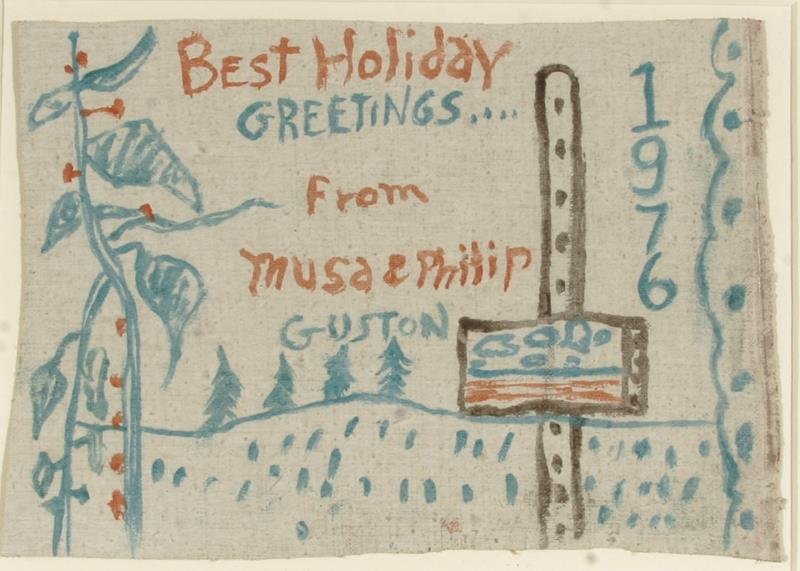 Best Holiday
GREETINGS....
From
Musa & Philip
GUSTON
1976